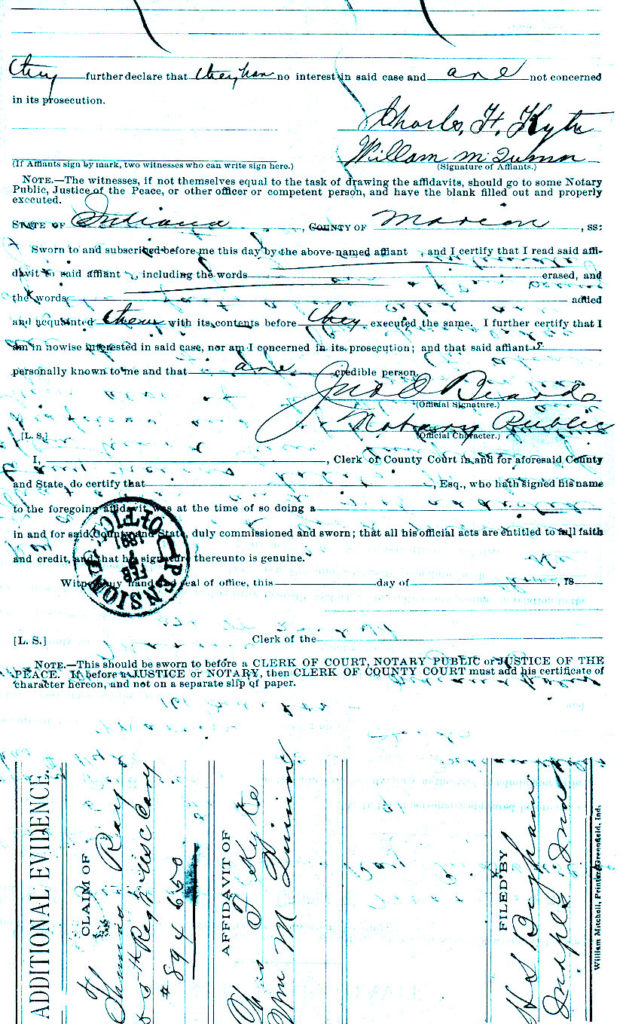 they further declare that they have no interest in said case and are not concerned
in its prosecution.
Charles H. Kyte
William M Quinn
(If Affiants sign by mark, two witnesses who can write sign here.) (Signature of Affiants.)
NOTE.—The witnesses, if not themselves equal to the task of drawing the affidavits, should go to some Notary
Public, Justice of the Peace, or other officer or competent person, and have the blank filled out and properly
executed.
STATE OF Indiana, COUNTY OF Marion, ss:
Sworn to and subscribed before me this day by the above-named affiant , and I certify that I read said affi-
davit to said affiant , including the words erased, and
the words added
and acquainted them with its contents before they executed the same. I further certify that I
am in nowise interested in said case, nor am I concerned in its prosecution; and that said affiant s
personally known to me and that are credible person
Jno O Beard
(Official Signature.)
Notary Public
[L. S.] (Official Character.)
I, , Clerk of County Court in and for aforesaid County
and State, do certify that , Esq., who hath signed his name
to the foregoing affidavit was at the time of so doing a
in and for said County and State, duly commissioned and sworn; that all his official acts are entitled to full faith
and credit, and that his signature thereunto is genuine.
Witness my hand and seal of office, this day of , 18
PENSION OFFICE
FEB
[L. S.] Clerk of the
NOTE.—This should be sworn to before a CLERK OF COURT, NOTARY PUBLIC or JUSTICE OF THE
PEACE. If before a JUSTICE or NOTARY, then CLERK OF COUNTY COURT must add his certificate of
character hereon, and not on a separate slip of paper.
ADDITIONAL EVIDENCE.
CLAIM OF
Thomas Ray
Regt
# 894650
AFFIDAVIT OF
Chas Kyte
Wm M Quinn
FILED BY
H S
Indpls Ind
William Mitchell, Printer, Greenfield, Ind.